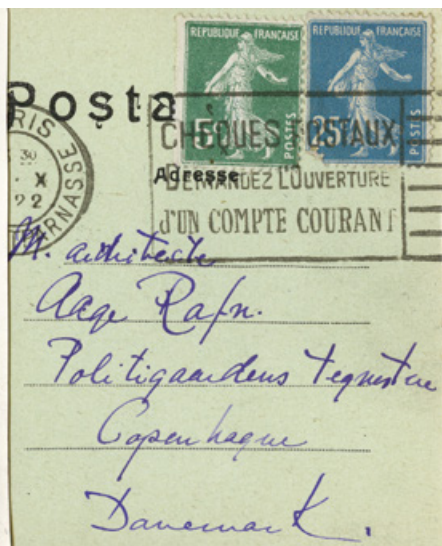 REPUBLIQUE FRANÇAISE
REPUBLIQUE FRANÇAISE
5c POSTES
25c POSTES
Posta
PARIS
30
X
22
CHEQUES POSTAUX
DEMANDEZ L'OUVERTURE
D'UN COMPTE COURANT
Adresse
M. architecte
Aage Rafn.
Politigaardens Tegnestue
Copenhague
Danemark.